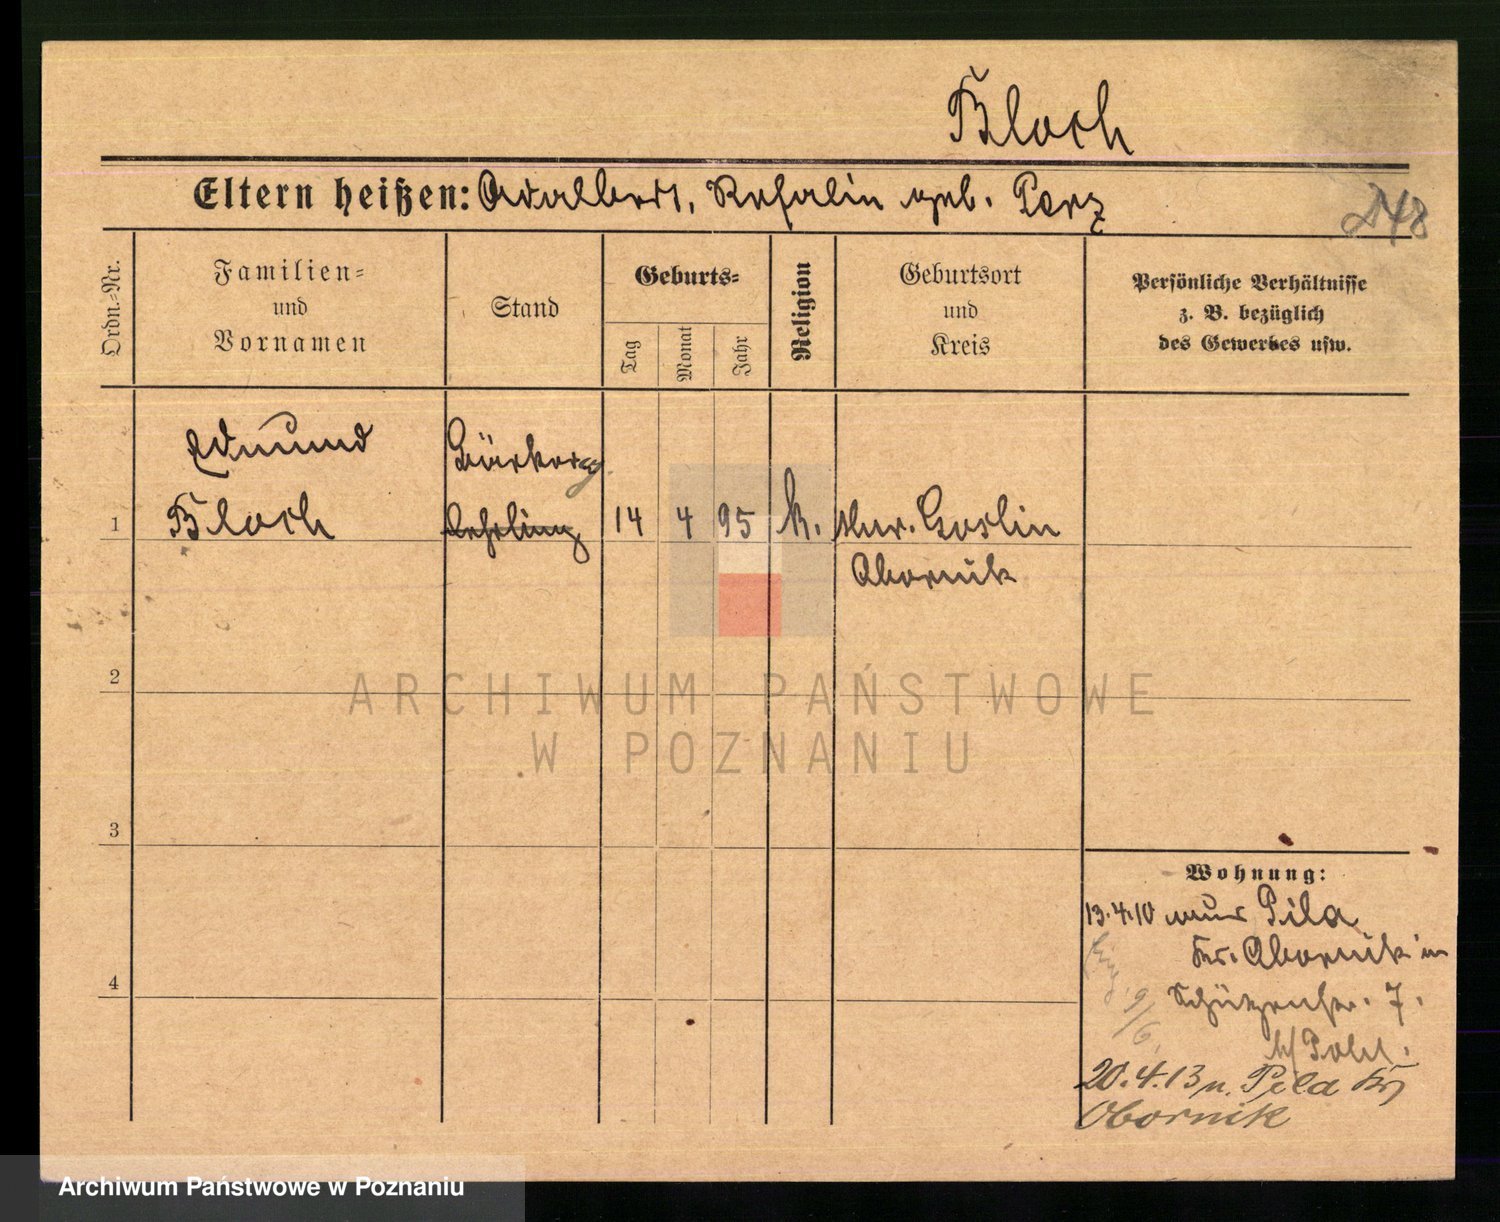 Bloch
Eltern heißen: Adalbert, Rosalin geb. Perz
248
Ordn.=Nr.
Familien=
und
Vornamen
Stand
Geburts=
Tag
Monat
Jahr
Religion
Geburtsort
und
Kreis
Persönliche Verhältnisse
z. B. bezüglich
des Gewerbes usw.
Edmund
Bloch
Bäcker
Lehrling
1
14
4
95
k.
Mur. Goslin
Obornik
2
ARCHIWUM PAŃSTWOWE
W POZNANIU
3
4
Wohnung:
13.4.10 Pila
Kr. Obornik in
Schützenstr. 7.
b/ Pohl.
20.4.13 n. Pila Kr
Obornik
Archiwum Państwowe w Poznaniu